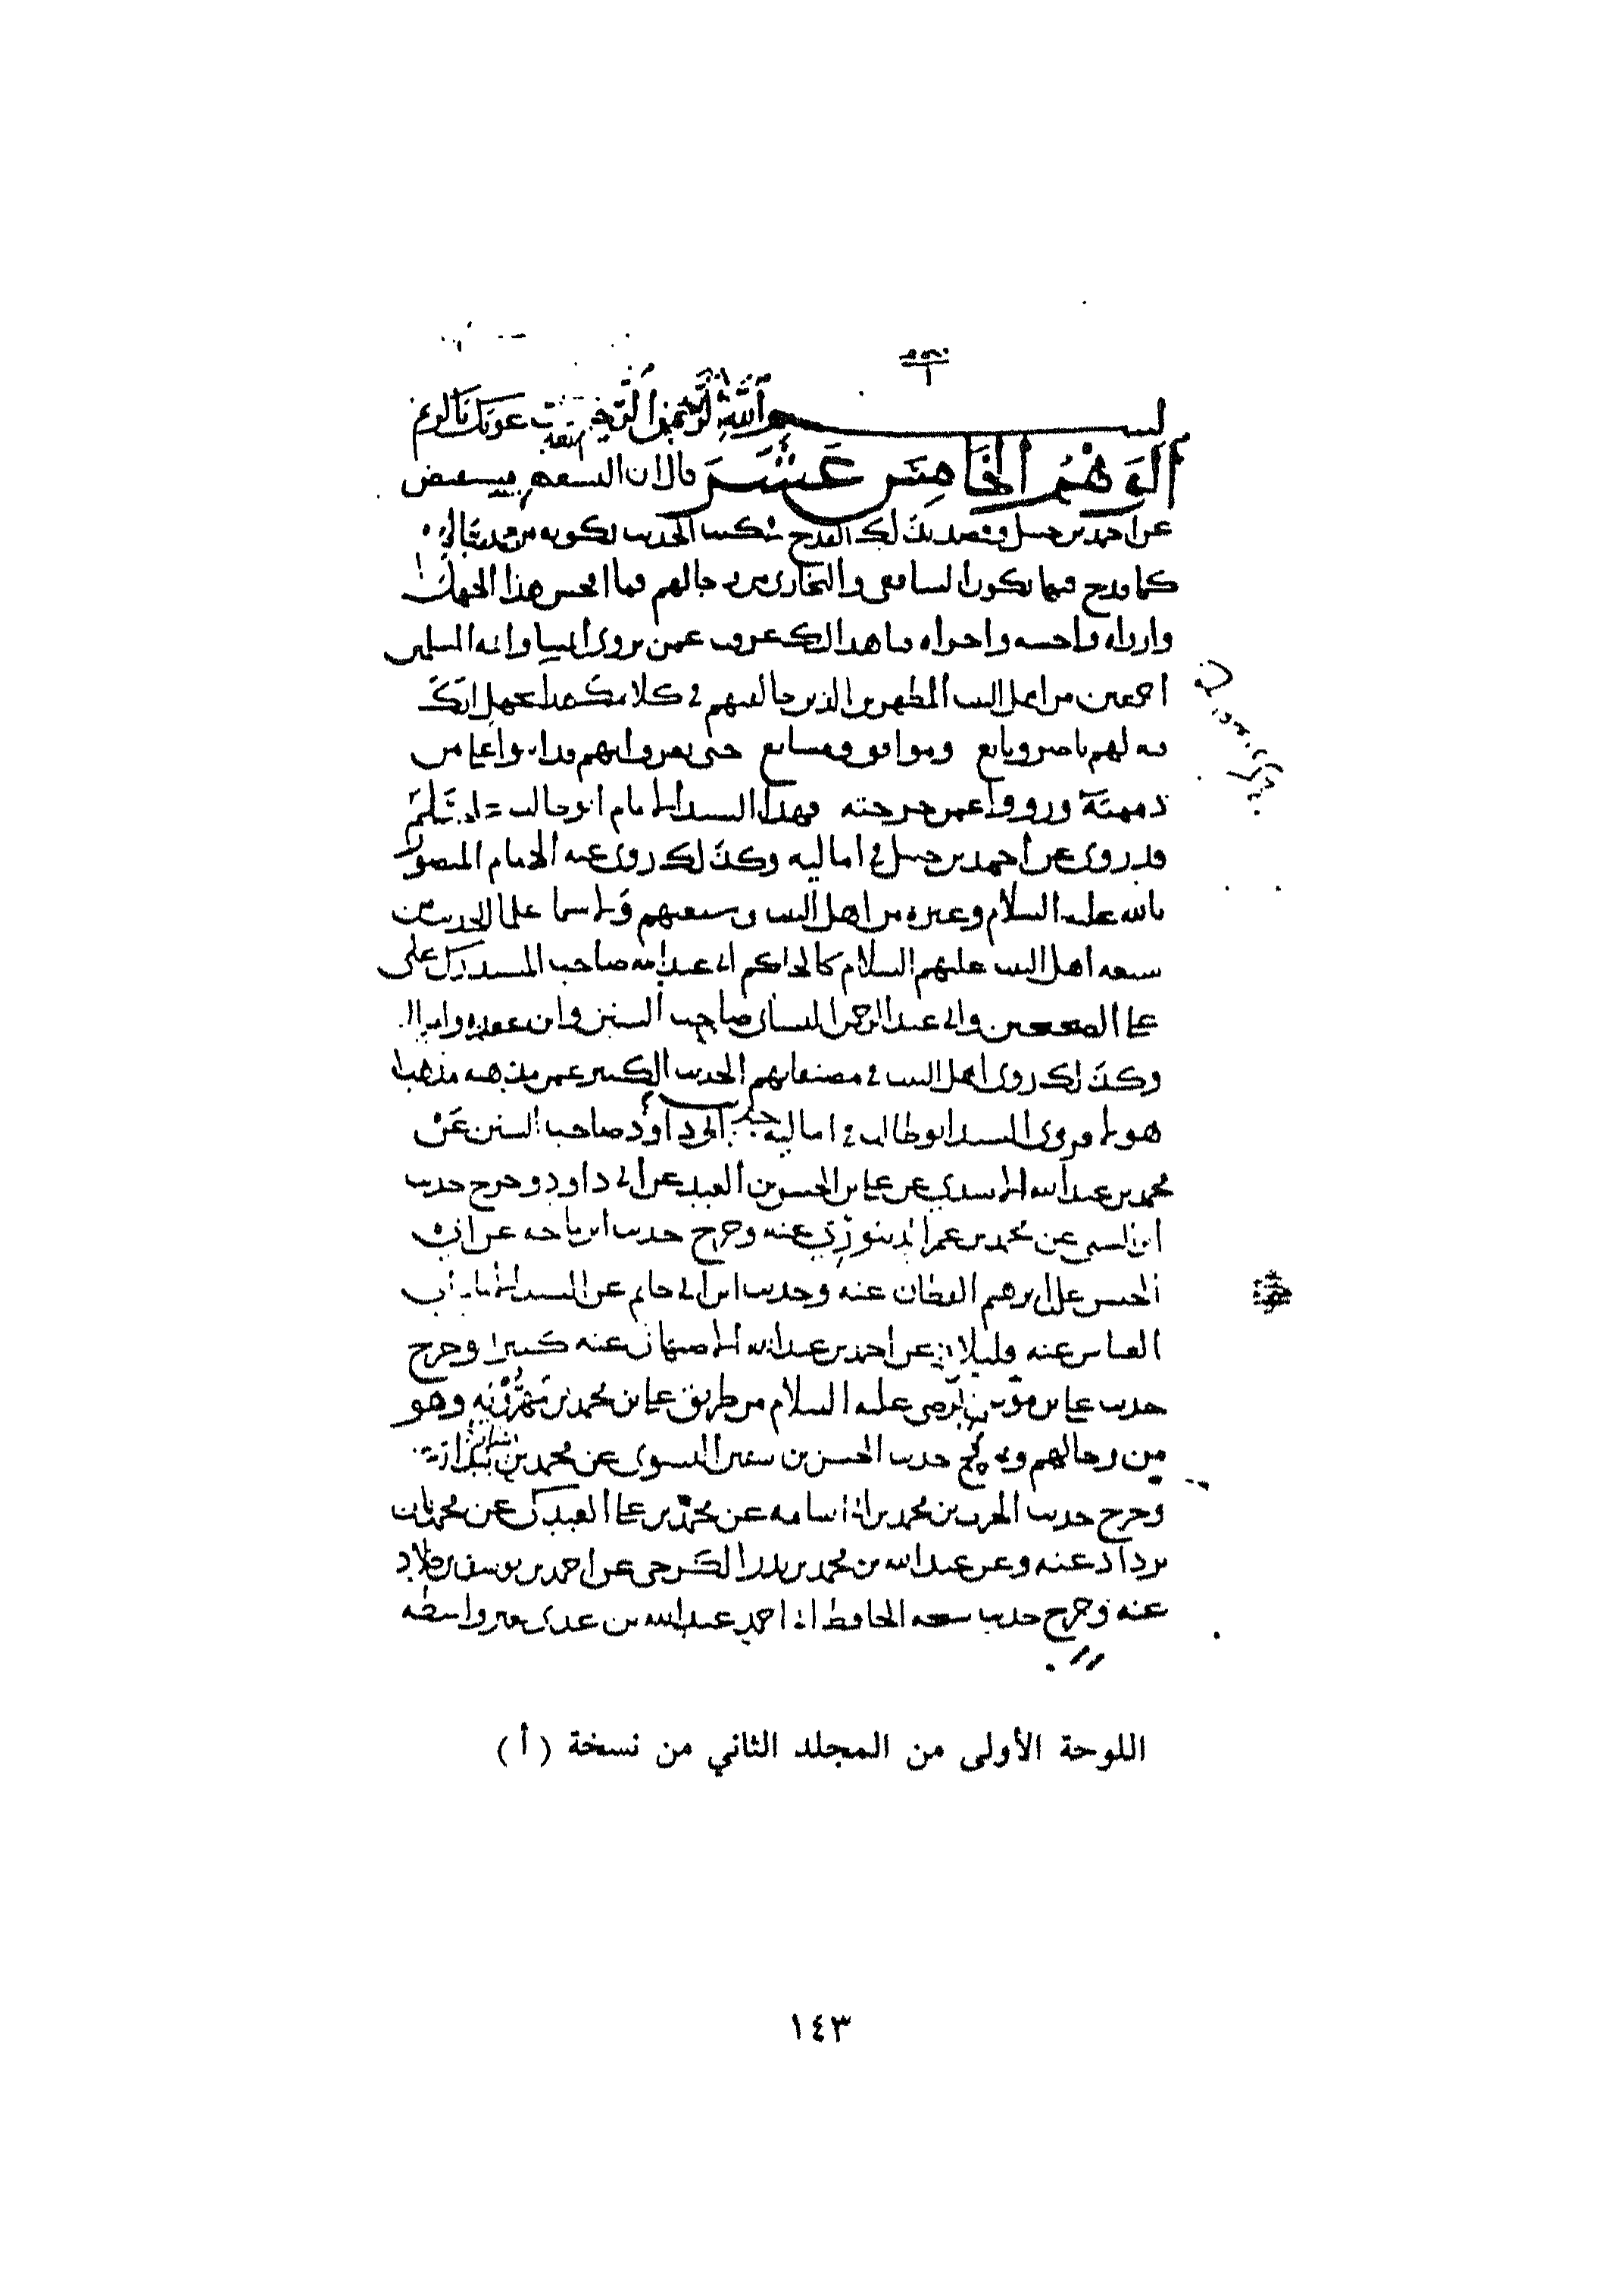 بسم الله الرحمن الرحيم عونك يا كريم
الوهم الخامس عشر قال إن الشيعة
عن أحمد بن حنبل وقصد بذلك القدح في كتب الحديث لكونه من
كما قدح فيها بكون الشافعي والبخاري من رجالهم فما أفحش هذا الجهل
وأرداه وأخسه وأجراه
أجمعين من أهل البيت المطهرين الذين في كلامك هذا
فيه لهم ناصر وتابع وموافق ومشايع حتى
ورووا عمن جرحته فهذا السيد الإمام أبو طالب
قد روى عن أحمد بن حنبل في أماليه وكذلك روى عنه الإمام المنصور
بالله عليه السلام وغيره من أهل البيت وشيعتهم ولا سيما علماء الحديث من
شيعة أهل البيت عليهم السلام كالحاكم أبي عبد الله صاحب المستدرك على
الصحيحين وأبي عبد الرحمن النسائي صاحب السنن وابن عقدة
وكذلك روى أهل البيت في مصنفاتهم الحديث الكثير عمن مذهبه مذهب
هؤلاء فروى السيد أبو طالب في أماليه حديث أبي داود صاحب السنن عن
محمد بن عبد الله الأسدي عن علي بن الحسن بن العبد عن أبي داود وخرج حديث
ابن السني عن محمد بن عمر الدينوري عنه وخرج حديث ابن ماجه عن أبي
الحسن علي بن إبراهيم القطان عنه وحديث ابن أبي حاتم عن السيد
العباس عنه قليلا وعن أحمد بن عبد الله الأصبهاني عنه كثيرا وخرج
حديث علي بن موسى الرضى عليه السلام من طريق علي بن محمد بن مهرويه وهو
من رجالهم وخرج حديث الحسن بن سفيان النسوي عن محمد بن بندار
وخرج حديث الحرث بن محمد بن أبي أسامة عن محمد بن علي العبدكي عن محمد بن
يزداد عنه وعن عبد الله بن محمد بن بدر الكرخي عن أحمد بن يوسف بن خلاد
عنه وخرج حديث شيخه الحافظ أبي أحمد عبد الله بن عدي بغير واسطة
اللوحة الأولى من المجلد الثاني من نسخة (أ)
١٤٣